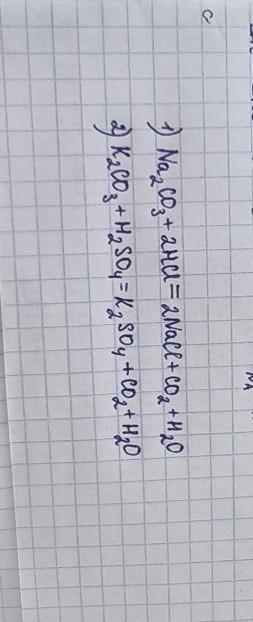 1) Na₂CO₃ + 2HCl = 2NaCl + CO₂ + H₂O
2) K₂CO₃ + H₂SO₄ = K₂SO₄ + CO₂ + H₂O